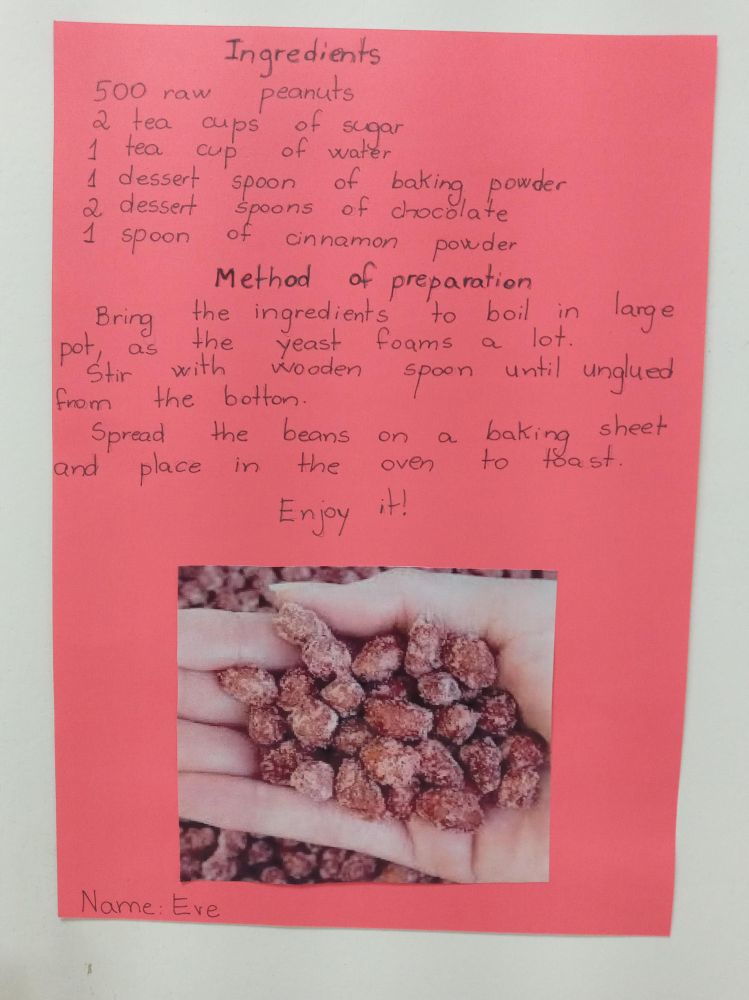 Ingredients
500 raw peanuts
2 tea cups of sugar
1 tea cup of water
1 dessert spoon of baking powder
2 dessert spoons of chocolate
1 spoon of cinnamon powder
Method of preparation
Bring the ingredients to boil in large
pot, as the yeast foams a lot.
Stir with wooden spoon until unglued
from the botton.
Spread the beans on a baking sheet
and place in the oven to toast.
Enjoy it!
Name: Eve